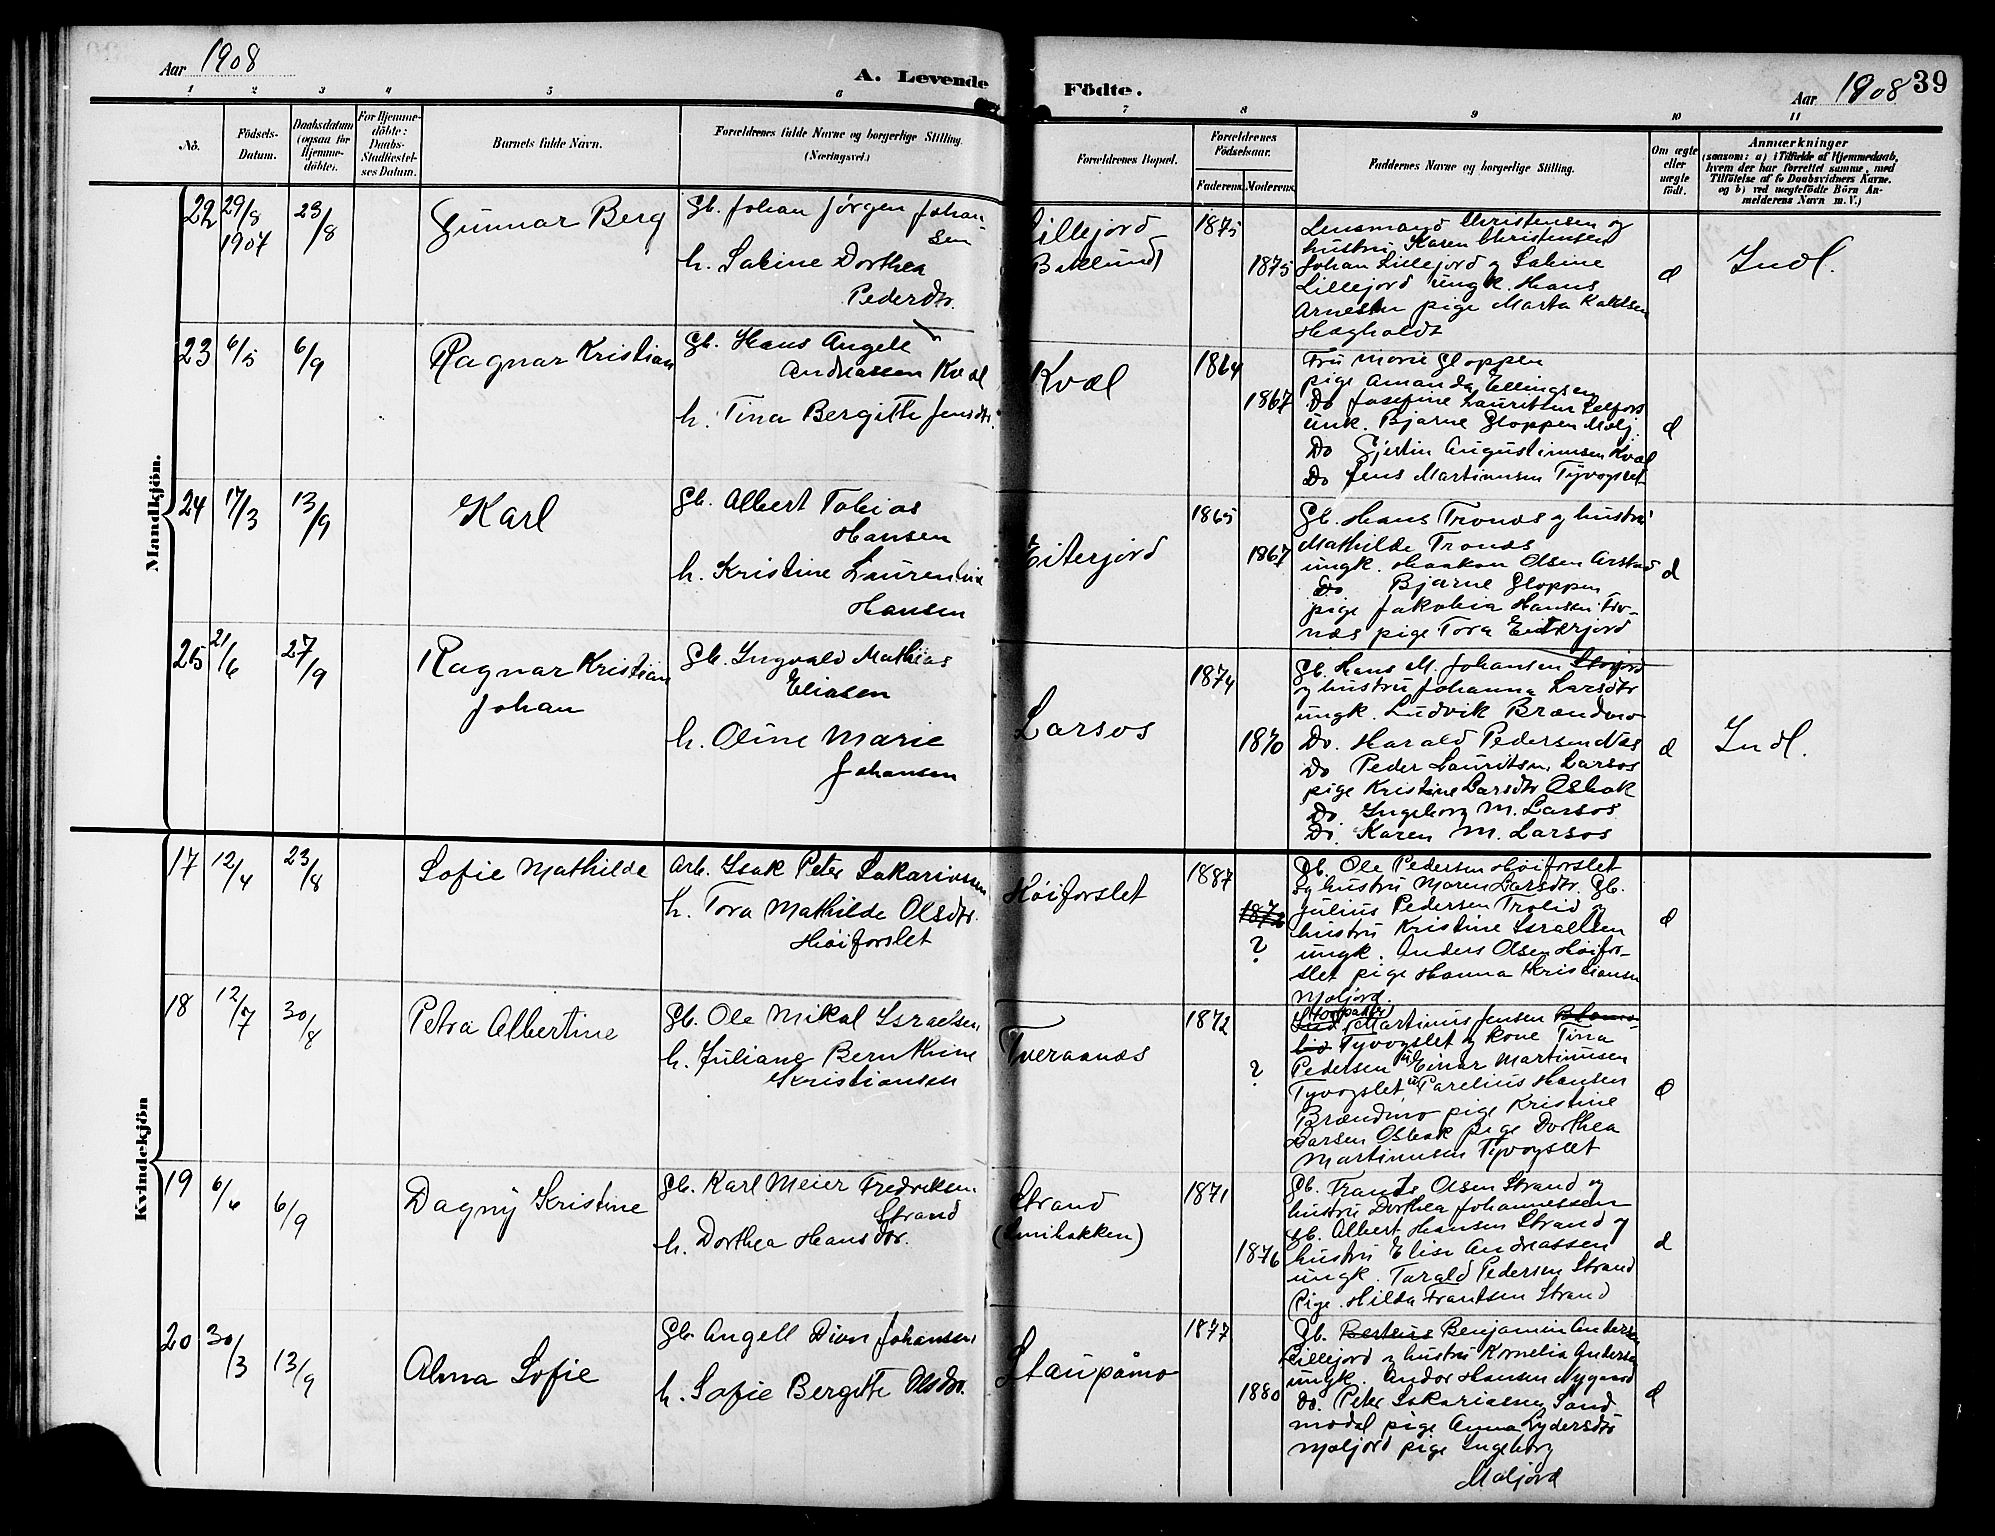 Aar 1908
A. Levende
Födte.
Aar 1908
39
1 2 3 4 5 6 7 8 9 10 11
No.
Födsels-
Datum.
Daabsdatum
(ogsaa for
Hjemme-
döbte).
For Hjemme-
döbte:
Daabs-
Stadfæstel-
ses Datum.
Barnets fulde Navn.
Forældrenes fulde Navne og borgerlige Stilling.
(Næringsvei.)
Forældrenes Bopæl.
Forældrenes
Födselsaar.
Faderens. Moderens.
Faddernes Navne og borgerlige Stilling.
Om ægte
eller
uægte
födt.
Anmærkninger
(saasom: a) i Tilfælde af Hjemmedaab,
hvem der har forrettet samme, med
Tilföielse af to Daabsvidners Navne.
og b) ved uægtefödte Börn An-
melderens Navn m. V.)
Mandkjön.
22
29/8
1907
23/8
Gunnar Berg
Gb. Johan Jørgen Johan
sen
h. Sabine Dorthea
Pedersdtr.
Lillejord
Baklund
1875
1875
Lensmand Christensen og
hustru Karen Christensen
Johan Lillejord og Sabine
Lillejord ungk. Hans
pige Marta
Indl.
23
6/5
6/9
Ragnar Kristian
Gb. Hans Angell
Andreassen Kvæl
h. Tina Bergitte Jensdtr.
Kvæl
1864
1867
Fru Marie Gloppen
pige Amanda Ellingsen
Do Josefine
unk. Bjarne Gloppen Molj.
Do Gjertin Augustinusen Kvæl
Do Jens Martinusen Tyvogslet
24
17/3
13/9
Karl
Gb. Albert Tobias
Hansen
h. Kristine Laurentine
Hansen
Eiterjord
1865
1867
Gb. Hans Tronæs og hustru
Mathilde Tronæs
ungk. Haakon Olsen Arstad
Do Bjarne Gloppen
pige Jakobia Hansen Tro-
næs pige Tora Eiterjord
25
21/6
27/9
Ragnar Kristian
Johan
Gb. Ingvald Mathias
Eliasen
h. Oline Marie
Johansen
Larsos
1874
1870
Gb. Hans M. Johansen Storjord
og hustru Johanna Larsdtr
ungk. Ludvik Brændmo
Do. Harald Pedersen Næs
Do Peder Lauritsen Larsos
pige Kristine Larsdtr Osbak
Do. Ingeborg M. Larsos
Do. Karen M. Larsos
Indl.
Kvindekjön
17
12/4
23/8
Sofie Mathilde
Arb. Isak Peter Sakariassen
h. Tora Mathilde Olsdtr.
Høiforslet
Høiforslet
1887
?
Gb. Ole Pedersen Høiforslet
og hustru Maren Larsdtr. Gb.
Julius Pedersen Trolid og
hustru Kristine Israelsen
ungk. Anders Olsen Høifor-
slet pige Hanna Kristiansen
Moljord.
18
12/7
30/8
Petra Albertine
Gb. Ole Mikal Israelsen
h. Juliana Bernthine
Kristiansen
Tveraanæs
1872
?
Martinus Jensen
Tyvogslet og kone Tina
Pedersen Einar Martinusen
Tyvogslet Parelius Hansen
Brændmo pige Kristine
Larsen Osbak pige Dorthea
Martinusen Tyvogslet
19
6/6
6/9
Dagny Kristine
Gb. Karl Meier Fredriksen
Strand
h. Dorthea Hansdtr.
Strand
1871
1876
Gb. Frants Olsen Strand og
hustru Dorthea Johannessen
Gb. Albert Hansen Strand og
hustru Elise Andreassen
ungk. Tarald Pedersen Strand
Pige. Hilda Frantsen Strand
20
30/3
13/9
Alma Sofie
Gb. Angell Dion Johansen
h. Sofie Bergitte Olsdtr.
Staupåmo
1877
1880
Gb. Berteus Benjamin Andersen
Lillejord og hustru Kornelia Andersen
ungk. Andor Hansen Nygaard
Do. Peter Sakariasen Sand
modal pige Anna Lydersdtr
Moljord pige Ingeborg
Moljord